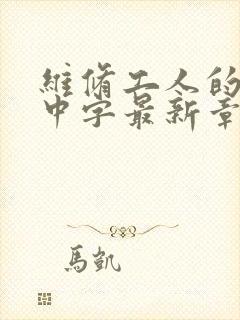 維脩工人的
中字最新章
馬凱